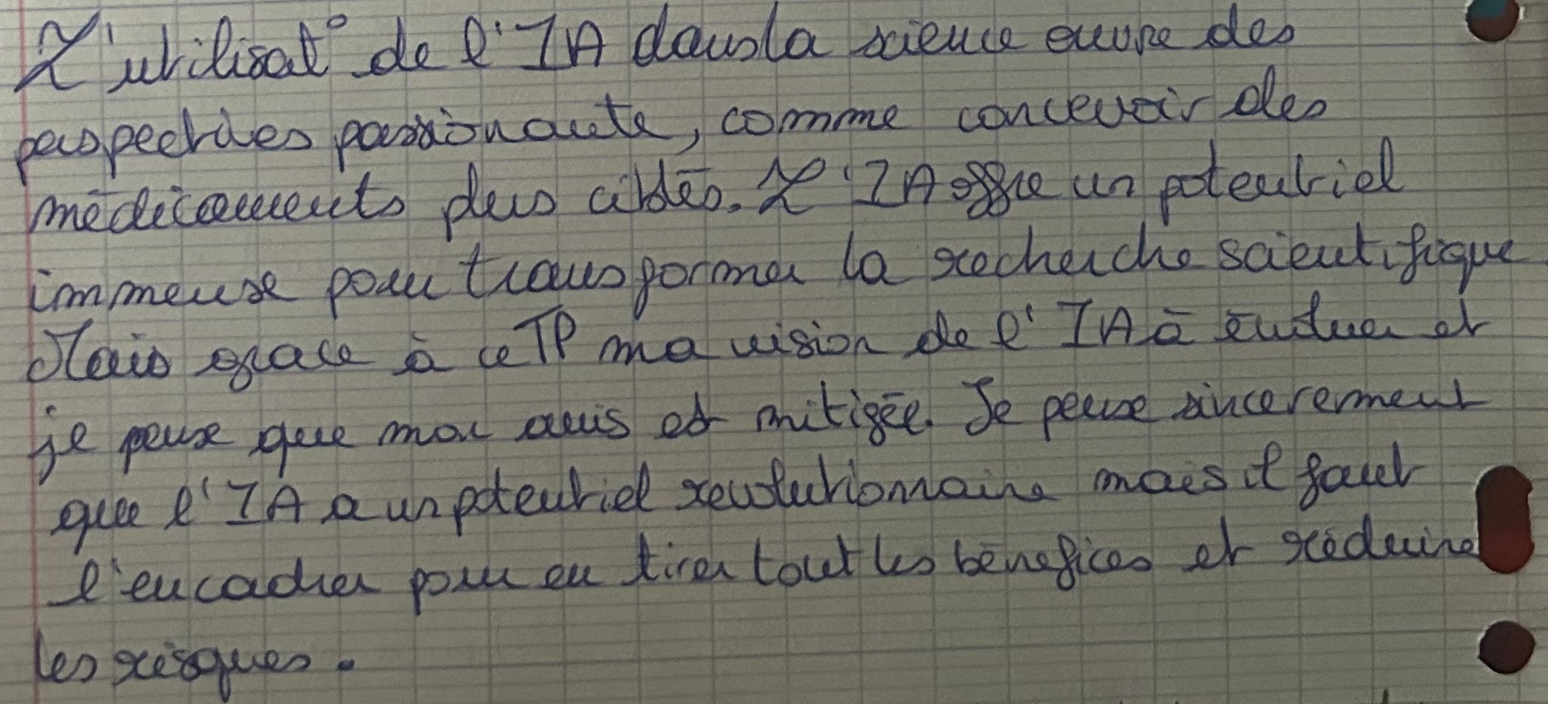 L'utilisat° de l'IA dans la science ouvre des
perspectives passionante, comme concevoir des
médicaments plus ciblés. L'IA offre un potentiel
immense pour transformer la recherche scientifique
Mais grace à ce TP ma vision de l'IA à évoluer et
je pense que mon avis est mitigée. Je pense sincerement
que l'IA a un potentiel revolutionnaire mais il faut
l'encadrer pour en tirer tout les bénéfices et réduire
les risques.